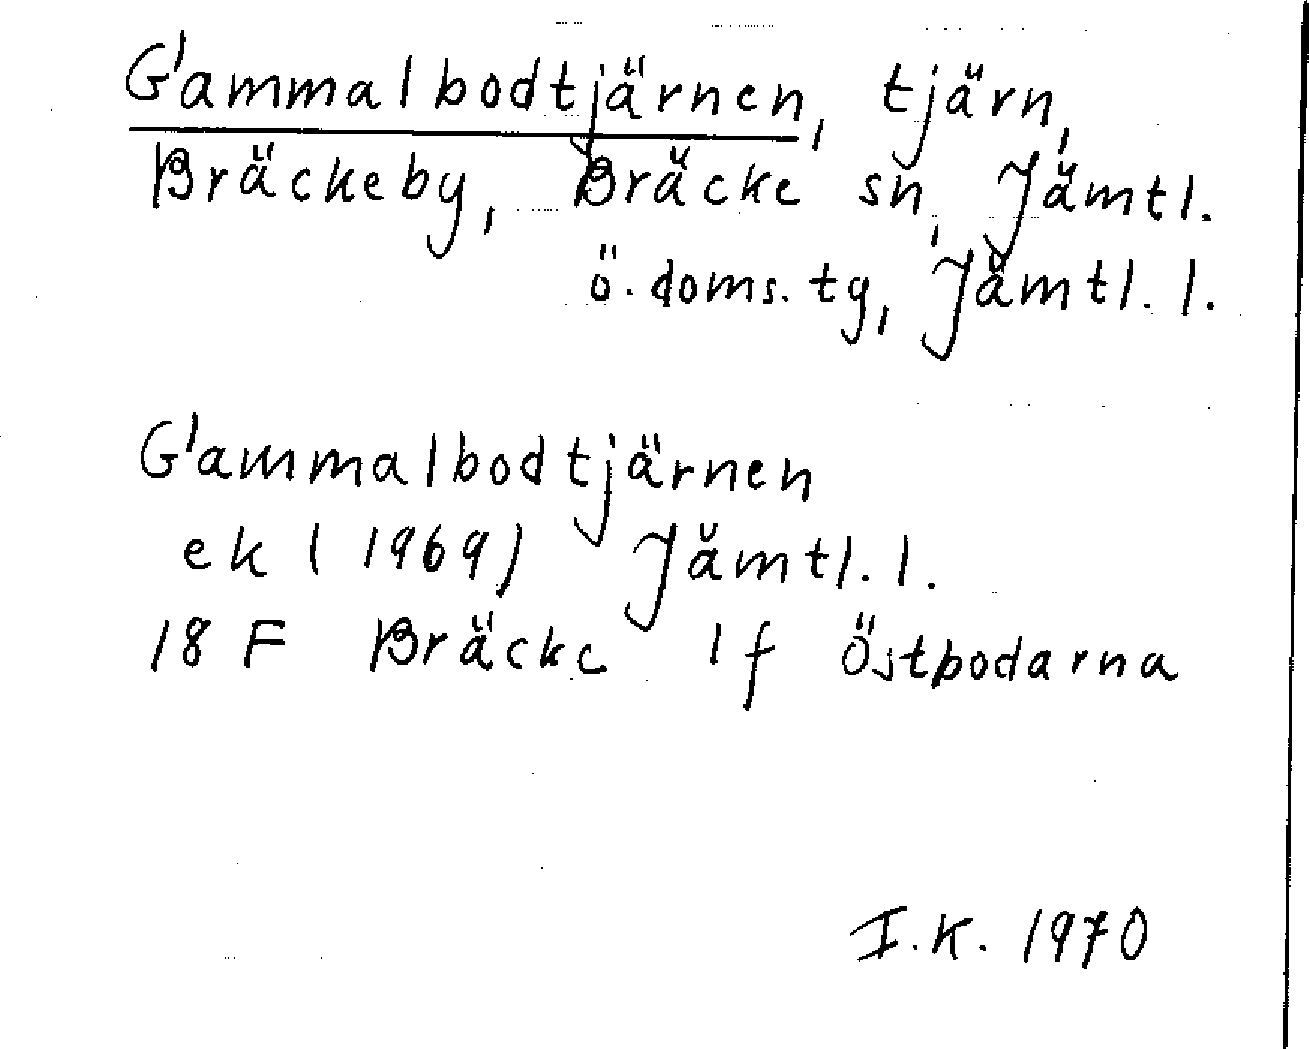 Gammalbodtjärnen, tjärn,
Bräckeby, Bräcke sn, Jämtl.
ö. doms. tg, Jämtl. l.
Gammalbodtjärnen
ek (1969) Jämtl. l.
18 F Bräcke 1 f Östbodarna
I.K. 1970